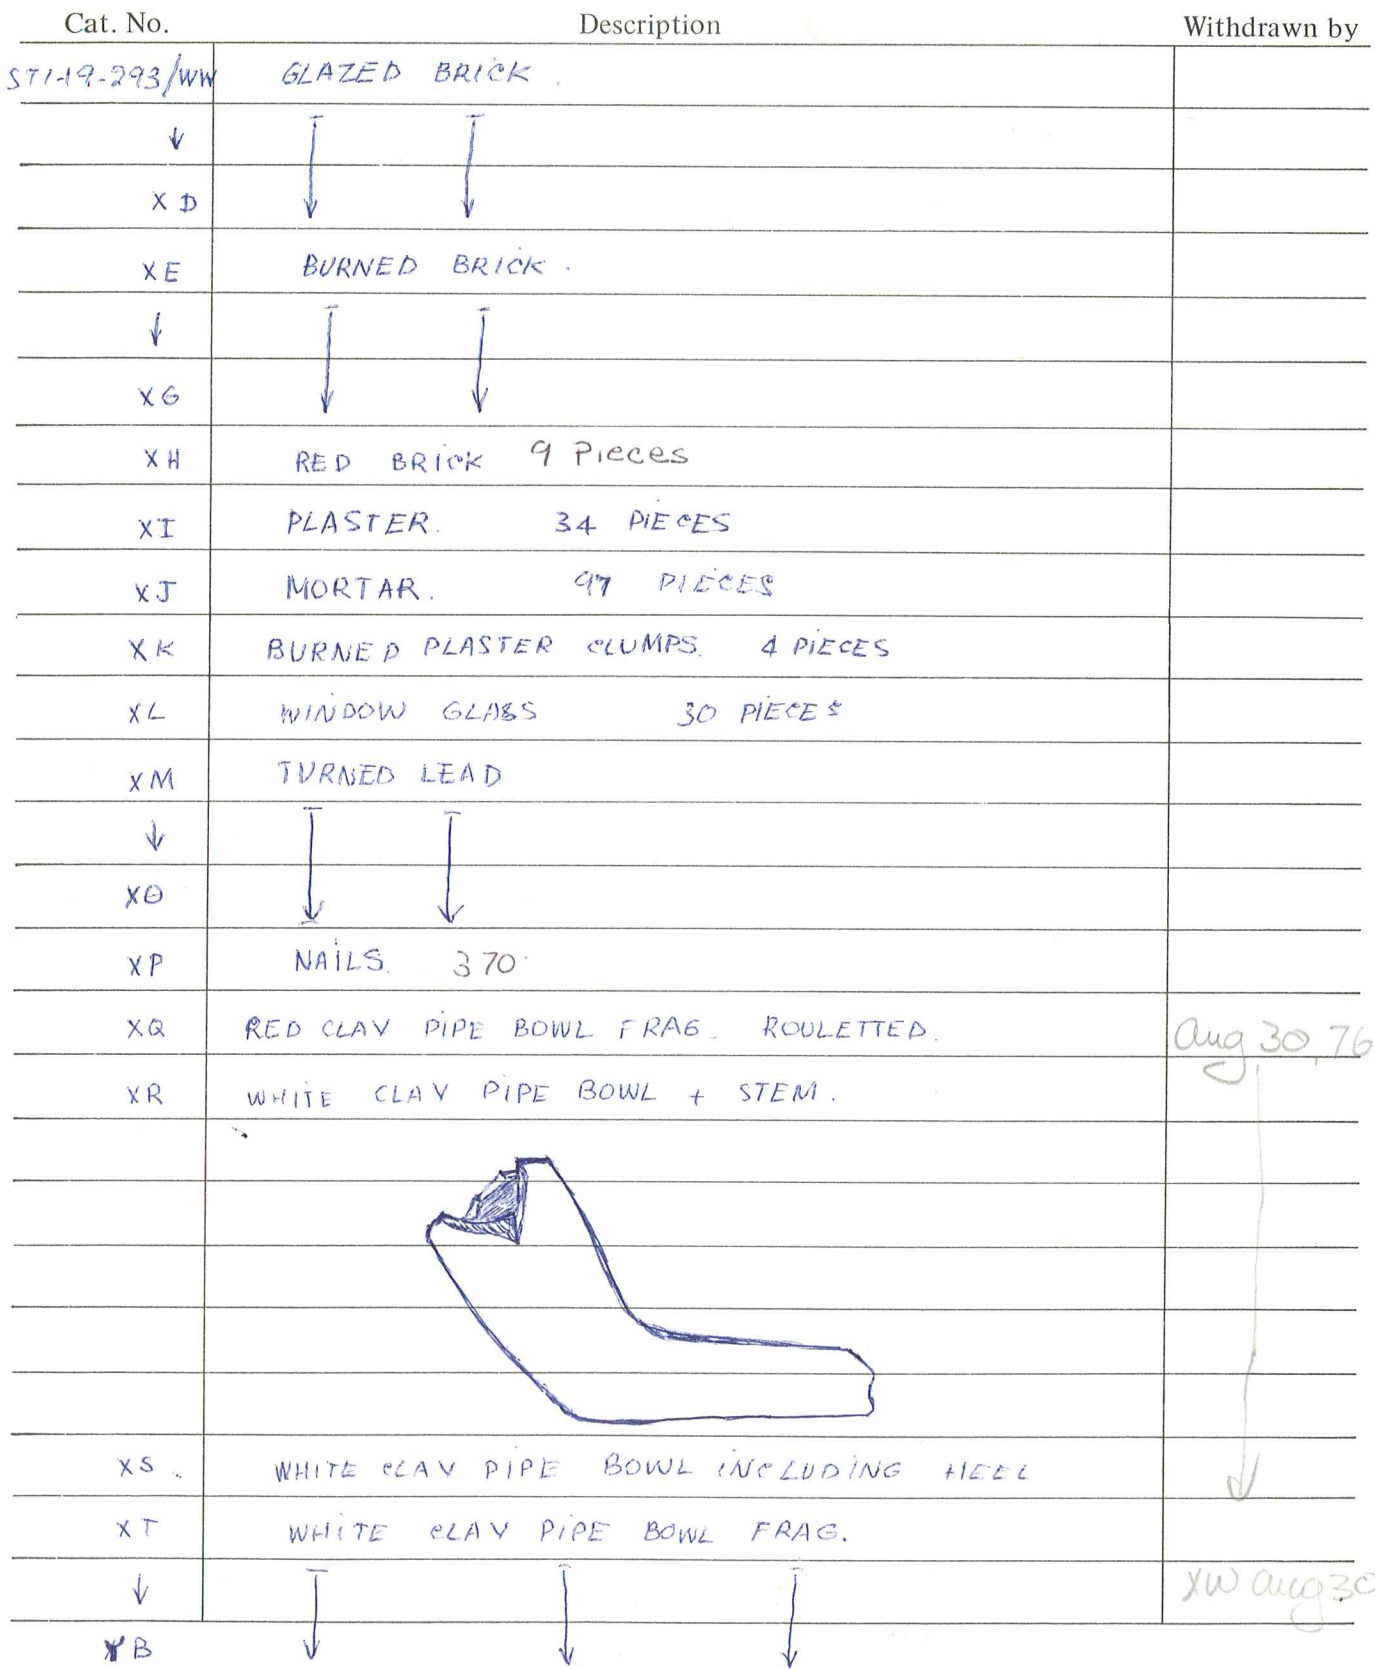 Cat. No. Description Withdrawn by
ST1-19-293/WW GLAZED BRICK.
↓ ↓ ↓
XD
XE BURNED BRICK.
↓ ↓ ↓
XG
XH RED BRICK 9 Pieces
XI PLASTER. 34 PIECES
XJ MORTAR. 97 PIECES
XK BURNED PLASTER CLUMPS. 4 PIECES
XL WINDOW GLASS 30 PIECES
XM TURNED LEAD
↓ ↓ ↓
XO
XP NAILS. 370
XQ RED CLAY PIPE BOWL FRAG. ROULETTED. Aug 30, 76
XR WHITE CLAY PIPE BOWL + STEM. ↓
XS. WHITE CLAY PIPE BOWL INCLUDING HEEL
XT WHITE CLAY PIPE BOWL FRAG.
↓ ↓ ↓ ↓ XW Aug 30
YB